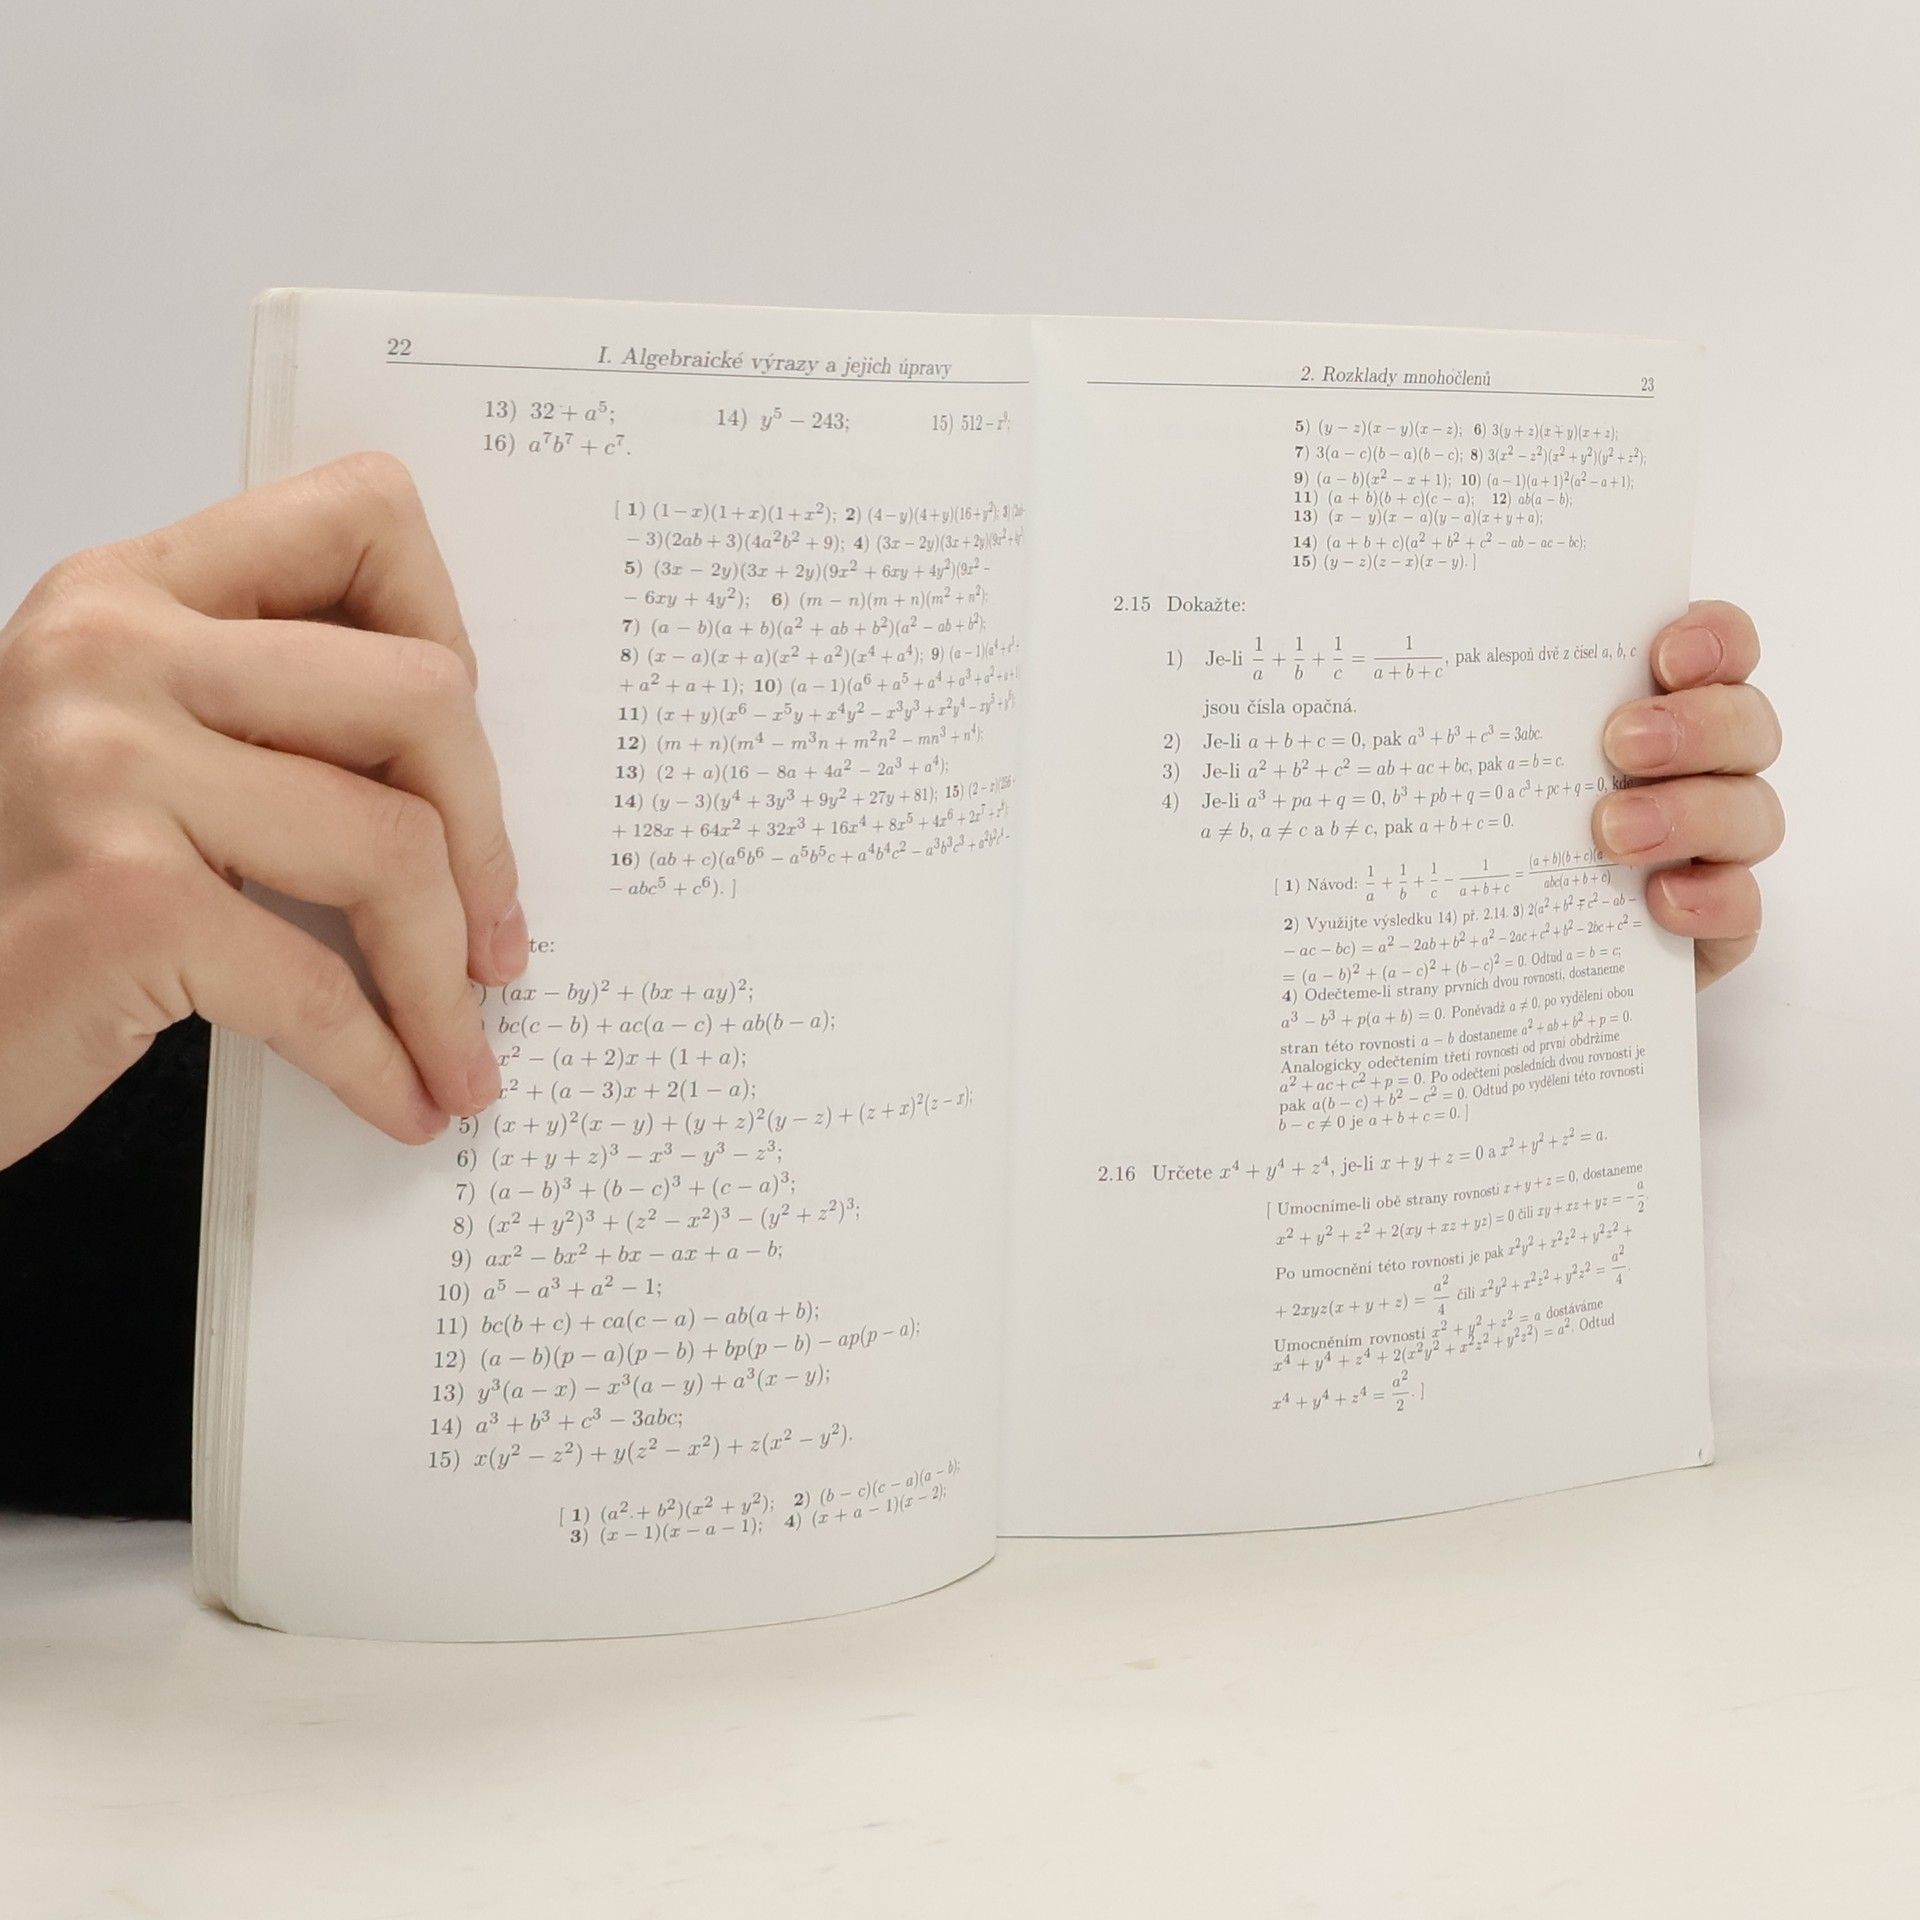 22 I. Algebraické výrazy a jejich úpravy
13) 32 + a⁵; 14) y⁵ − 243; 15) 512 − x⁹;
16) a⁷b⁷ + c⁷.
[ 1) (1−x)(1+x)(1+x²); 2) (4−y)(4+y)(16+y²); 3)
− 3)(2ab + 3)(4a²b² + 9); 4) (3x − 2y)(3x + 2y)(9x² + 4y²)
5) (3x − 2y)(3x + 2y)(9x² + 6xy + 4y²)(9x² −
− 6xy + 4y²); 6) (m − n)(m + n)(m² + n²);
7) (a − b)(a + b)(a² + ab + b²)(a² − ab + b²);
8) (x − a)(x + a)(x² + a²)(x⁴ + a⁴); 9) (a − 1)(a⁴ + a³ +
+ a² + a + 1); 10) (a − 1)(a⁶ + a⁵ + a⁴ + a³ + a² + a + 1)
11) (x + y)(x⁶ − x⁵y + x⁴y² − x³y³ + x²y⁴ − xy⁵ + y⁶);
12) (m + n)(m⁴ − m³n + m²n² − mn³ + n⁴);
13) (2 + a)(16 − 8a + 4a² − 2a³ + a⁴);
14) (y − 3)(y⁴ + 3y³ + 9y² + 27y + 81); 15) (2 − x)(256 +
+ 128x + 64x² + 32x³ + 16x⁴ + 8x⁵ + 4x⁶ + 2x⁷ + x⁸);
16) (ab + c)(a⁶b⁶ − a⁵b⁵c + a⁴b⁴c² − a³b³c³ + a²b²c⁴ −
− abc⁵ + c⁶). ]
te:
) (ax − by)² + (bx + ay)²;
) bc(c − b) + ac(a − c) + ab(b − a);
x² − (a + 2)x + (1 + a);
x² + (a − 3)x + 2(1 − a);
5) (x + y)²(x − y) + (y + z)²(y − z) + (z + x)²(z − x);
6) (x + y + z)³ − x³ − y³ − z³;
7) (a − b)³ + (b − c)³ + (c − a)³;
8) (x² + y²)³ + (z² − x²)³ − (y² + z²)³;
9) ax² − bx² + bx − ax + a − b;
10) a⁵ − a³ + a² − 1;
11) bc(b + c) + ca(c − a) − ab(a + b);
12) (a − b)(p − a)(p − b) + bp(p − b) − ap(p − a);
13) y³(a − x) − x³(a − y) + a³(x − y);
14) a³ + b³ + c³ − 3abc;
15) x(y² − z²) + y(z² − x²) + z(x² − y²).
[ 1) (a² + b²)(x² + y²); 2) (b − c)(c − a)(a − b);
3) (x − 1)(x − a − 1); 4) (x + a − 1)(x − 2);
2. Rozklady mnohočlenů 23
5) (y − z)(x − y)(x − z); 6) 3(y + z)(x + y)(x + z);
7) 3(a − c)(b − a)(b − c); 8) 3(x² − z²)(x² + y²)(y² + z²);
9) (a − b)(x² − x + 1); 10) (a − 1)(a + 1)²(a² − a + 1);
11) (a + b)(b + c)(c − a); 12) ab(a − b);
13) (x − y)(x − a)(y − a)(x + y + a);
14) (a + b + c)(a² + b² + c² − ab − ac − bc);
15) (y − z)(z − x)(x − y). ]
2.15 Dokažte:
1) Je-li 1/a + 1/b + 1/c = 1/(a + b + c), pak alespoň dvě z čísel a, b, c
jsou čísla opačná.
2) Je-li a + b + c = 0, pak a³ + b³ + c³ = 3abc.
3) Je-li a² + b² + c² = ab + ac + bc, pak a = b = c.
4) Je-li a³ + pa + q = 0, b³ + pb + q = 0 a c³ + pc + q = 0, kde
a ≠ b, a ≠ c a b ≠ c, pak a + b + c = 0.
[ 1) Návod: 1/a + 1/b + 1/c − 1/(a + b + c) = (a + b)(b + c)(a / abc(a + b + c)
2) Využijte výsledku 14) př. 2.14. 3) 2(a² + b² + c² − ab −
− ac − bc) = a² − 2ab + b² + a² − 2ac + c² + b² − 2bc + c² =
= (a − b)² + (a − c)² + (b − c)² = 0. Odtud a = b = c;
4) Odečteme-li strany prvních dvou rovností, dostaneme
a³ − b³ + p(a + b) = 0. Poněvadž a ≠ 0, po vydělení obou
stran této rovnosti a − b dostaneme a² + ab + b² + p = 0.
Analogicky odečtením třetí rovnosti od první obdržíme
a² + ac + c² + p = 0. Po odečtení posledních dvou rovností je
pak a(b − c) + b² − c² = 0. Odtud po vydělení této rovnosti
b − c ≠ 0 je a + b + c = 0. ]
2.16 Určete x⁴ + y⁴ + z⁴, je-li x + y + z = 0 a x² + y² + z² = a.
[ Umocníme-li obě strany rovnosti x + y + z = 0, dostaneme
x² + y² + z² + 2(xy + xz + yz) = 0 čili xy + xz + yz = −a/2.
Po umocnění této rovnosti je pak x²y² + x²z² + y²z² +
+ 2xyz(x + y + z) = a²/4 čili x²y² + x²z² + y²z² = a²/4.
Umocněním rovnosti x² + y² + z² = a dostáváme
x⁴ + y⁴ + z⁴ + 2(x²y² + x²z² + y²z²) = a². Odtud
x⁴ + y⁴ + z⁴ = a²/2. ]